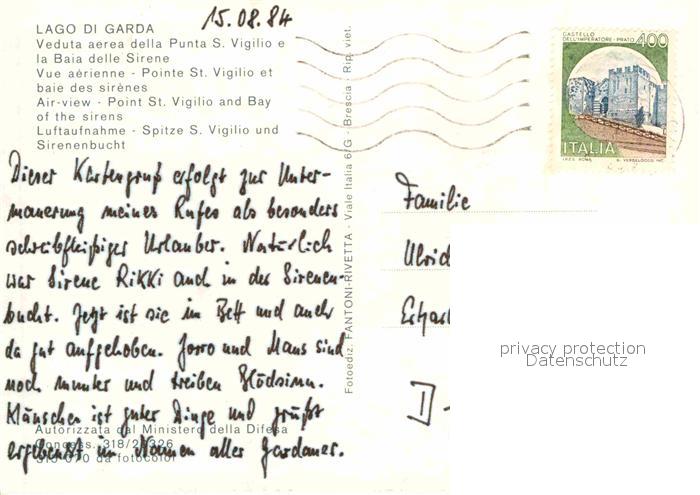 15.08.84
LAGO DI GARDA
Veduta aerea della Punta S. Vigilio e
la Baia delle Sirene
Vue aérienne - Pointe St. Vigilio et
baie des sirènes
Air-view - Point St. Vigilio and Bay
of the sirens
Luftaufnahme - Spitze S. Vigilio und
Sirenenbucht
Dieser Kartengruß erfolgt zur Unter-
mauerung meines Rufes als besonders
schreibfleißiger Urlauber. Natürlich
war Sirene RiKKi auch in der Sirenen-
bucht. Jetzt ist sie im Bett und auch
da gut aufgehoben. und Mans sind
noch munter und treiben Blödsinn.
ist guter Dinge und grüßt
ergebenst im Namen aller Gardaner.
Autorizzata dal Ministero della Difesa
Concess. 318/
da fotocolor
Fotoediz. FANTONI-RIVETTA - Viale Italia 6/G - Brescia - Rip. viet.
CASTELLO
DELL'IMPERATORE - PRATO
400
ITALIA
I.P.Z.S. ROMA
Familie
Ulrich
D-
privacy protection
Datenschutz